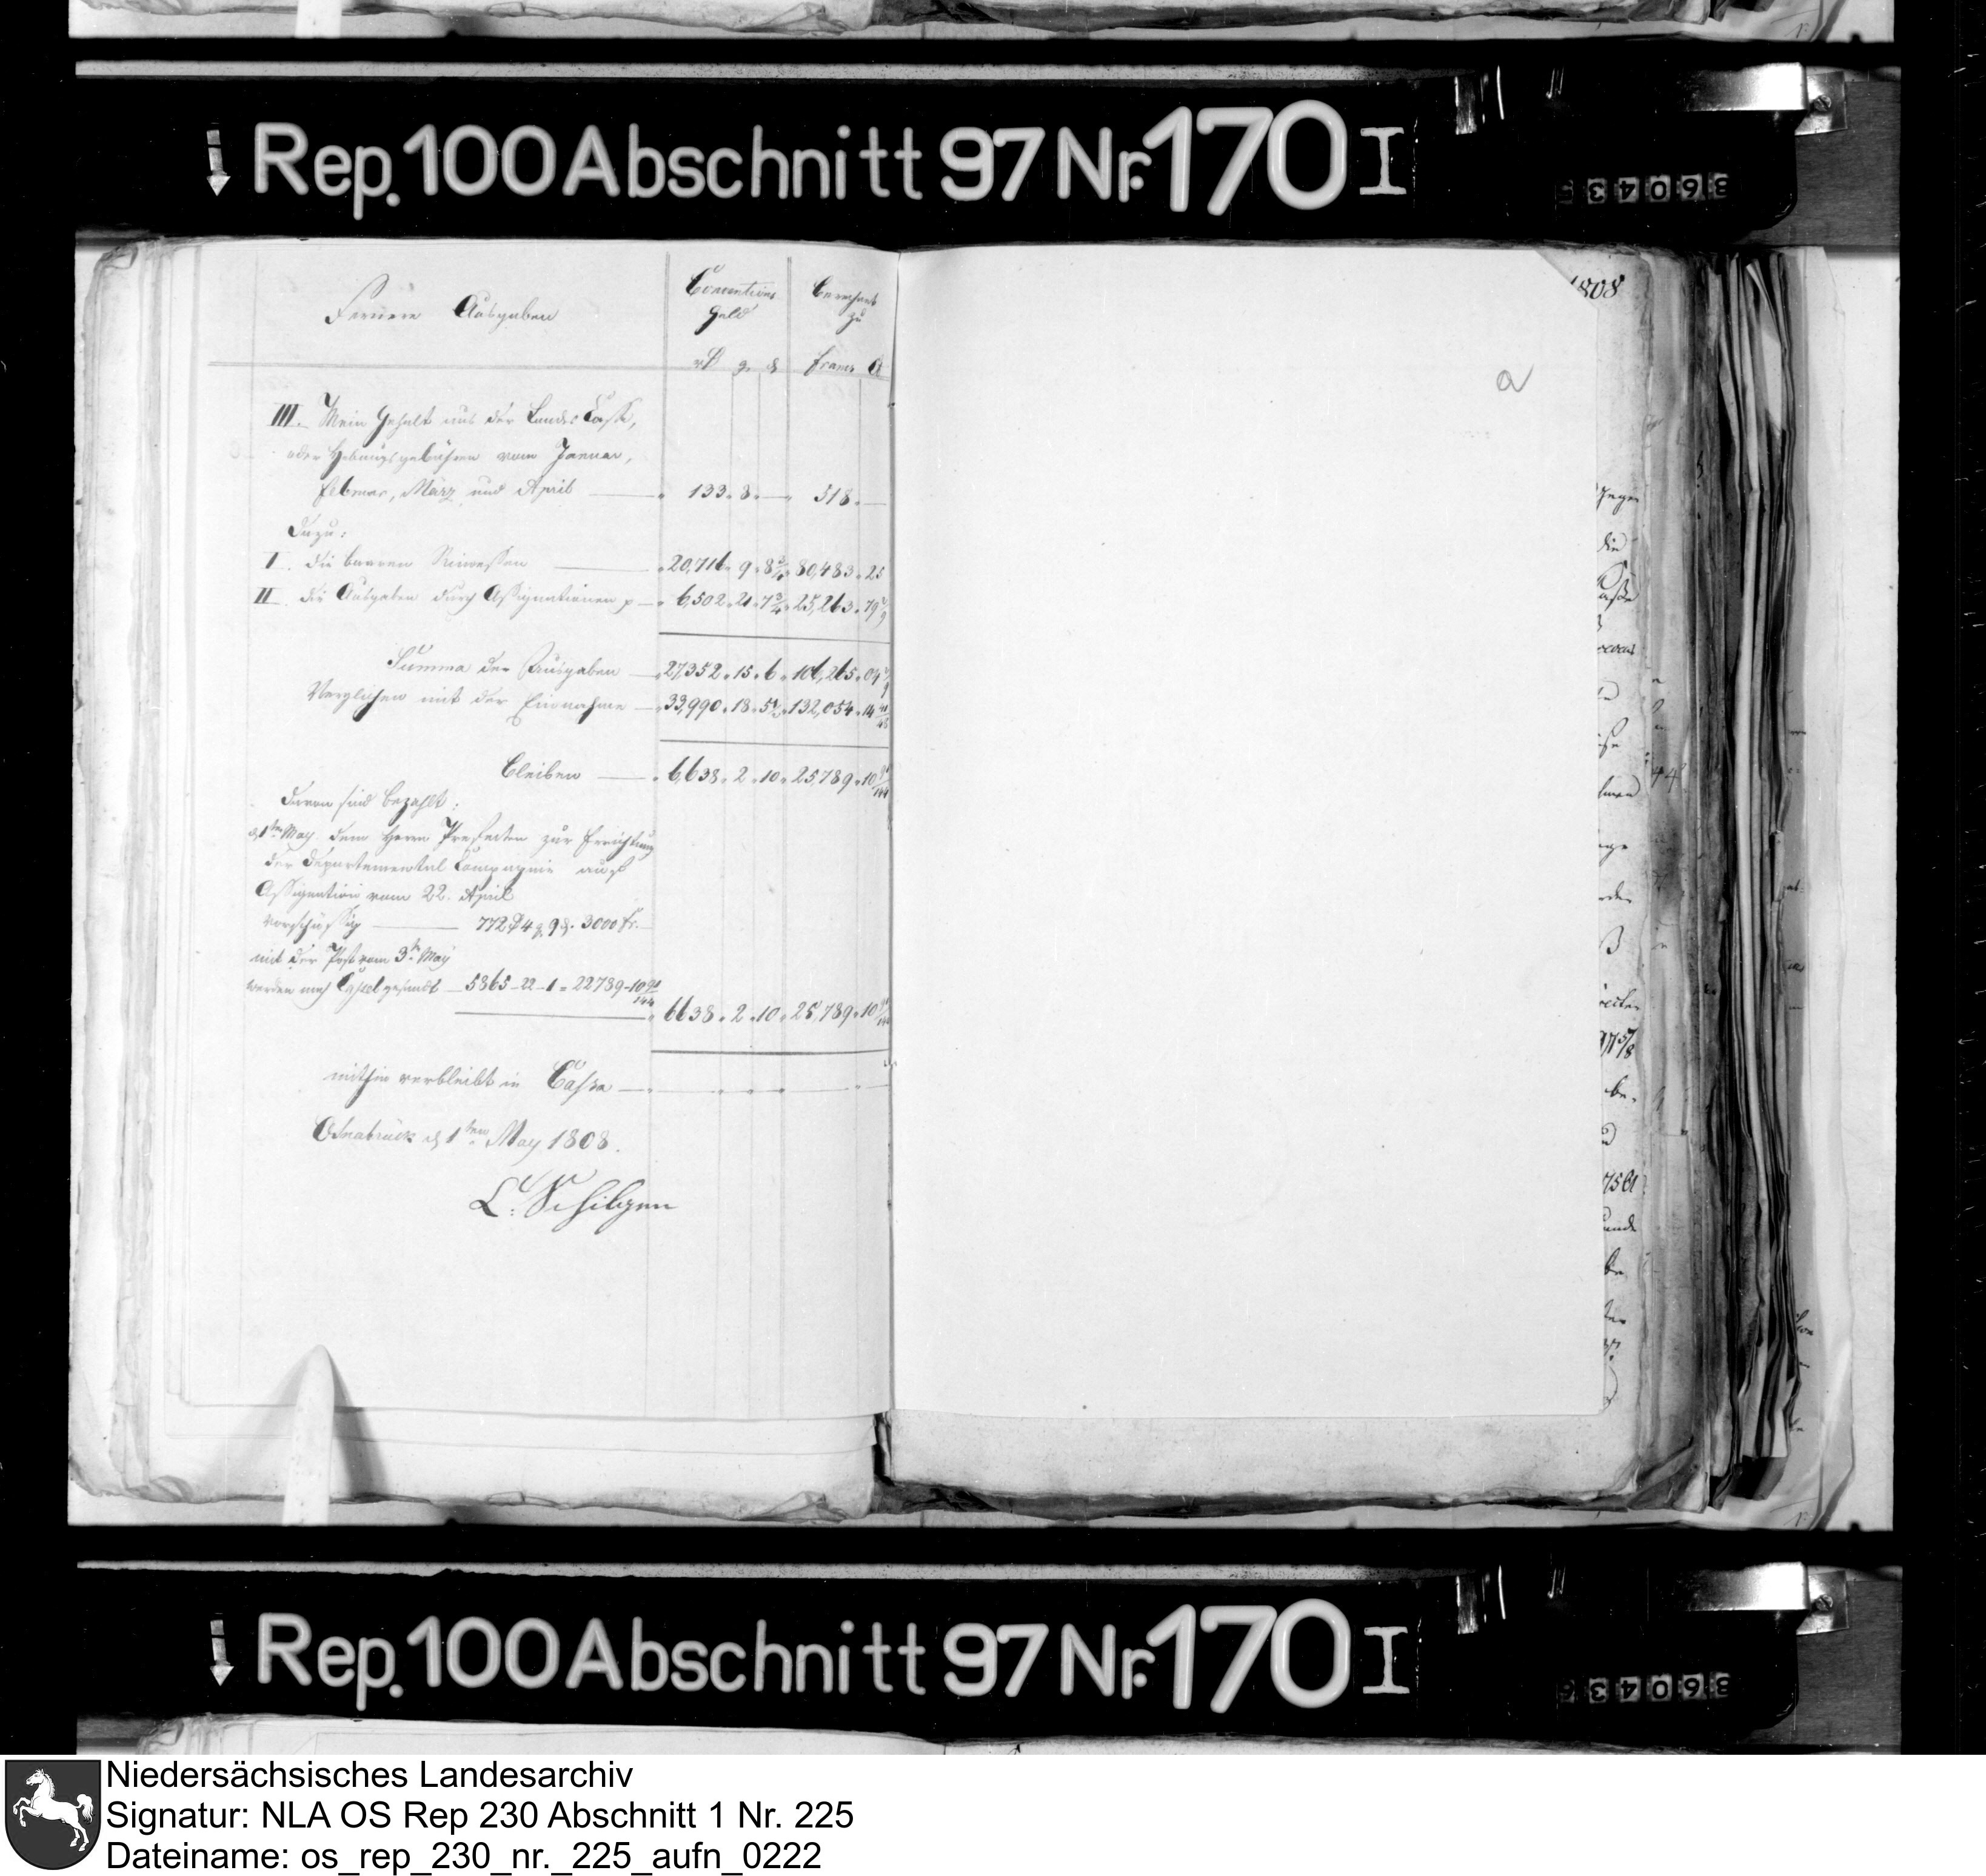 Rep. 100 Abschnitt 97 Nr. 170 I
360435
Fernere Ausgaben
Conventions Geld
berechnet zu
rth g. d
francs C
III. Mein Gehalt aus der Landes Casse,
oder Hebungsgebühren vom Januar,
Februar, März und April 133. 8. — 518. —
Dazu:
I. die baaren 20,716. 9. 8 3/4 80,483. 25
II. die Ausgaben durch Assignationen p 6,502. 21. 7 3/4 25,263. 79
Summa der Ausgaben 27352. 15. 6. 106,265. 04
Verglichen mit der Einnahme 33,990. 18. 132,054. 14
Bleiben 6,638. 2. 10. 25789. 10 /144
davon sind bezahlt:
d 1ten May dem Herrn Prefecten zur Errichtung
der Departemental Compagnie auf
Assignation vom 22. April
vorschüssig 772 4 g 9 d. 3000 fr.
mit der Post vom 3ten May
werden nach Cassel gesandt 5865-22-1 = 22789-10 91/144
6638. 2. 10. 25,789. 10 /144
mithin verbleibt in Cassa
Osnabrück d 1ten May 1808.
L. Schilgen
1808
a
die
be,
Rep. 100 Abschnitt 97 Nr. 170 I
36043
Niedersächsisches Landesarchiv
Signatur: NLA OS Rep 230 Abschnitt 1 Nr. 225
Dateiname: os_rep_230_nr._225_aufn_0222